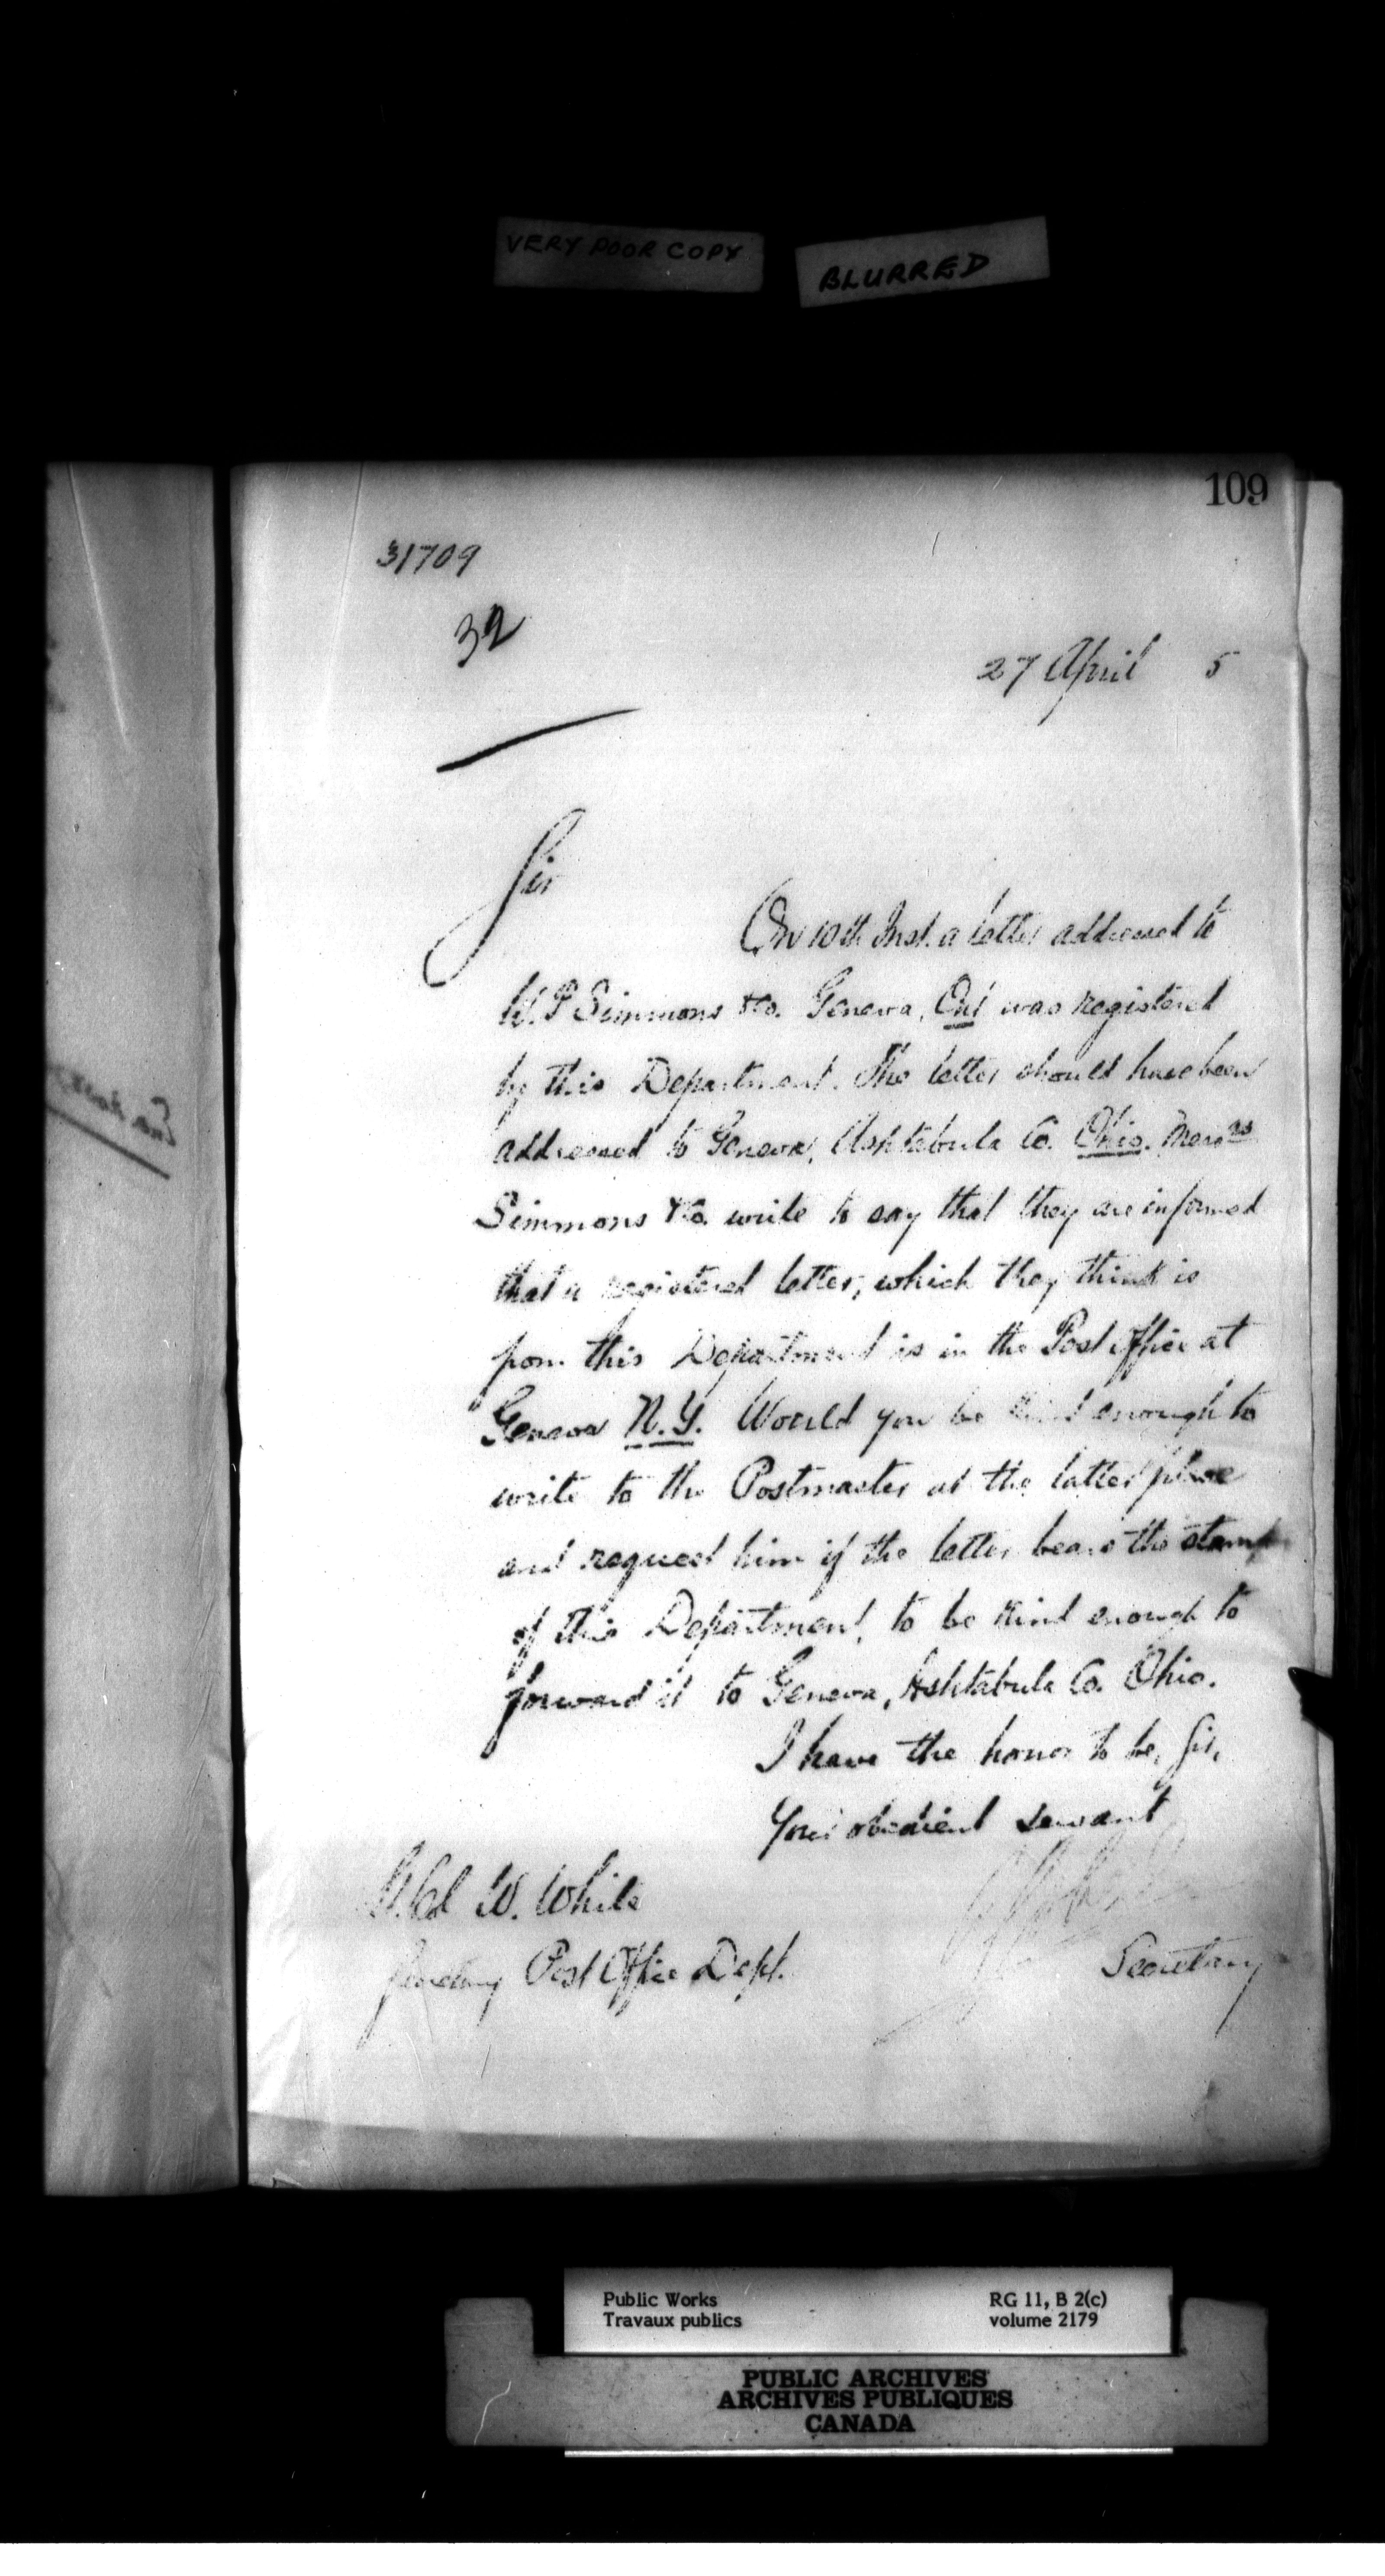 VERY POOR COPY
BLURRED
109
31709
32
27 April 5
Sir
On 10th Inst. a letter addressed to
W. P Simmons & Co. Geneva, Ont was registered
by this Department. The letter should have been
addressed to Geneva, Ashtabula Co. Ohio. Messrs
Simmons & Co. write to say that they are informed
that a registered letter, which they think is
from this Department is in the Post Office at
Geneva N.Y. Would you be kind enough to
write to the Postmaster at the latter place
and request him if the letter bears the stamp
of this Department, to be kind enough to
forward it to Geneva, Ashtabula Co. Ohio.
I have the honor to be, Sir,
Your obedient servant
W. White
Secretary
Post Office Dept.
Public Works
Travaux publics
RG 11, B 2(c)
volume 2179
PUBLIC ARCHIVES
ARCHIVES PUBLIQUES
CANADA